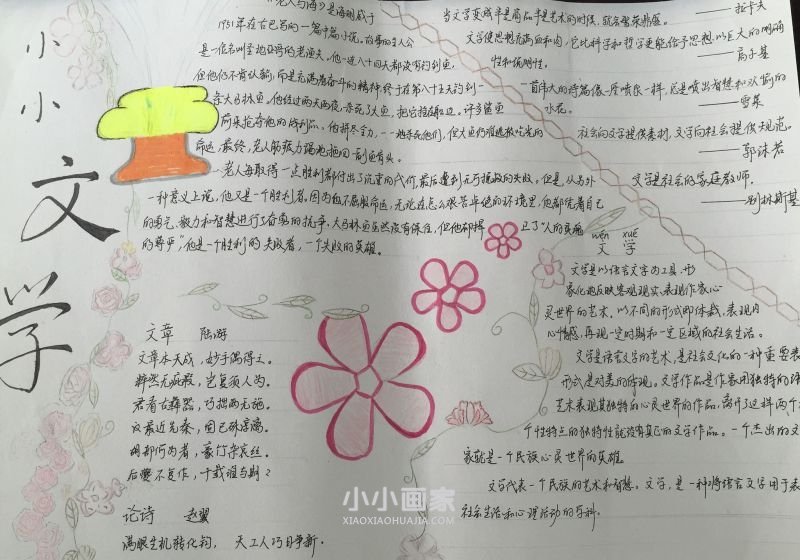 小小
文学
《老人与海》是海明威于
1951年在古巴写的一篇中篇小说。故事的主人公
是一位名叫圣地亚哥的老渔夫，他一连八十四天都没有钓到鱼，
但他仍不肯认输，而是充满着奋斗的精神，终于在第八十五天钓到一
条大马林鱼。他经过两天两夜，杀死了大鱼，把它拴在船边。许多鲨鱼
前来抢夺他的战利品。他拼尽全力，一一地杀死他们，但大鱼仍难逃被吃光的
命运，最终，老人筋疲力竭地拖回一副鱼骨头。
老人每取得一点胜利都付出了沉重的代价，最后遭到无可挽救的失败，但是，从另外
一种意义上说，他又是一个胜利者。因为他不屈服命运，无论在怎么艰苦卓绝的环境里，他都凭着自己
的勇气、毅力和智慧进行了奋勇的抗争。大马林鱼虽然没有保住，但他却捍卫了“人的灵魂
的尊严”，他是一个胜利的失败者，一个失败的英雄。
当文学变成半是商品半是艺术的时候，就会繁荣鼎盛。
——拉卡夫
文学使思想充满血和肉，它比科学和哲学更能给予思想以巨大的明确
性和说明性。
——高尔基
一首伟大的诗篇像一座喷泉一样，总是喷出智慧和欢愉的
水花。
——雪莱
社会向文学提供素材，文学向社会提供规范。
——郭沫若
文学是社会的家庭教师。
——别林斯基
wén xué
文 学
文学是以语言文字为工具，形
象化地反映客观现实、表现作家心
灵世界的艺术，以不同的形式即体裁，表现内
心情感，再现一定时期和一定区域的社会生活。
文学是语言文字的艺术，是社会文化的一种重要表
形式，是对美的体现。文学作品是作家用独特的语
艺术表现其独特的心灵世界的作品，离开了这样两个
个性特点的独特性就没有真正的文学作品。一个杰出的文
家就是一个民族心灵世界的英雄。
文学代表一个民族的艺术和智慧。文学，是一种将语言文字用于表
社会生活和心理活动的学科。
文章 陆游
文章本天成，妙手偶得之。
粹然无疵瑕，岂复须人为。
君看古彝器，巧拙两无施。
汉最近先秦，固已殊淳漓。
胡部何为者，豪竹杂哀丝。
后夔不复作，千载谁与期？
论诗 赵翼
满眼生机转化钧，天工人巧日争新。
小小画家
XIAOXIAOHUAJIA.COM